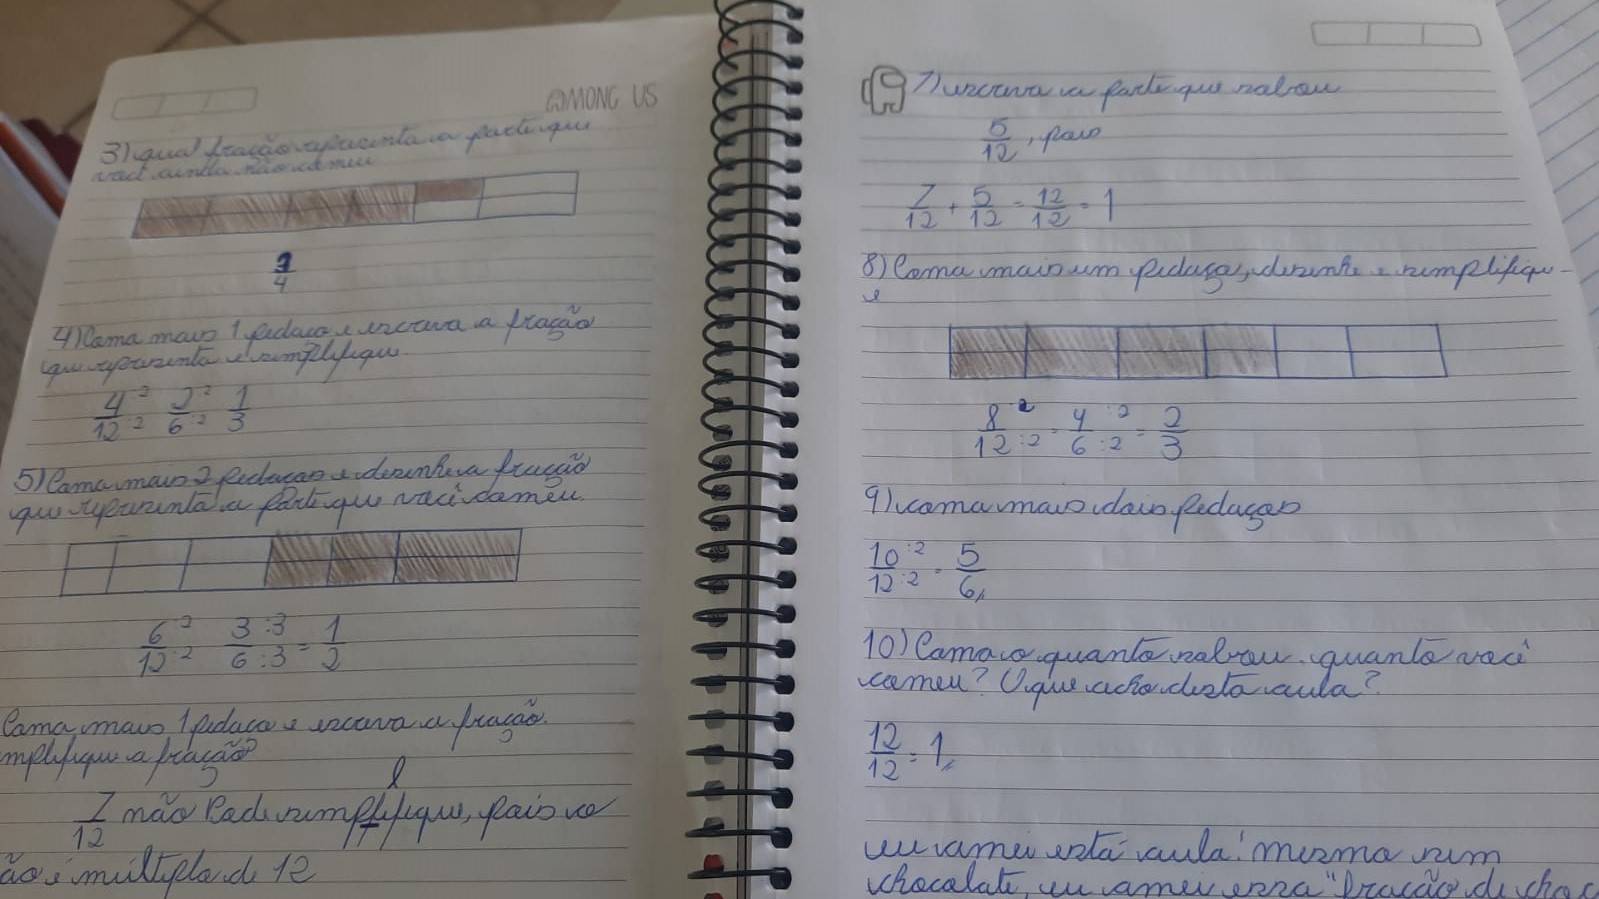 AMONG US
3) qual fração representa a parte que
você ainda não comeu
3
4
4) Coma mais 1 pedaço e escreva a fração
que representa e simplifique.
4 :2 2 :2 1
12 :2 6 :2 3
5) Coma mais 2 pedaços e desenhe a fração
que representa a parte que você comeu.
6 :2 3 :3 = 1
12 :2 6 :3 2
Coma mais 1 pedaço e escreva a fração.
mplifique a fração?
7 não Pode simplifique, pois o
12
ão é múltiplo de 12
7) escreva a parte que sobrou
5 , pois
12
7 + 5 = 12 = 1
12 12 12
8) Coma mais um pedaço, desenhe e simplifiqu-
e
8 :2 = 4 :2 = 2
12 :2 6 :2 3
9) coma mais dois pedaços
10 :2 = 5
12 :2 6
10) Coma o quanto sobrou. quanto você
comeu? O que acho desta aula?
12 = 1
12
eu amei está aula! mesmo sem
chocolate, eu amei essa "fração de choc